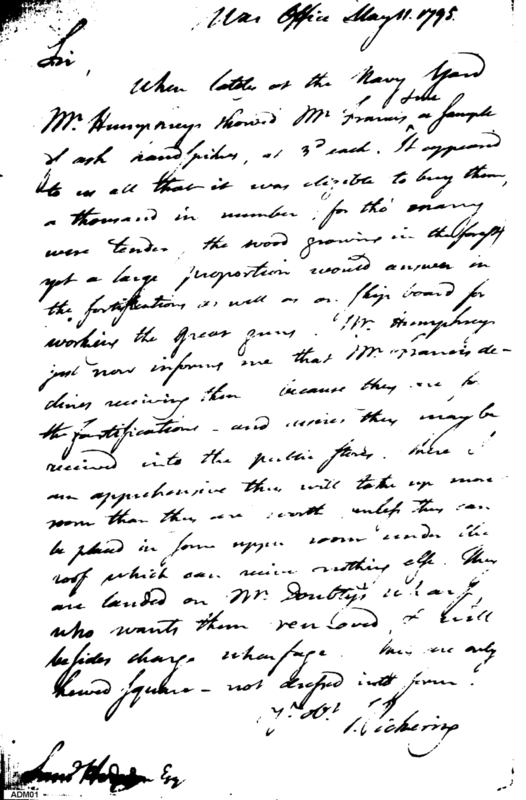 War Office May 11. 1795.
Sir,
When lately at the Navy Yard
Mr. Humphreys showed Mr. Francis & me a sample
of ash handspikes, at 3d each. It appeared
to us all that it was eligible to buy them,
a thousand in number; for tho' many
were tender, the wood growing in the forest,
yet a large proportion would answer in
the fortifications as well as on ship board for
working the great guns. Mr. Humphreys
just now informs me that Mr. Francis de-
clines receiving them because they are for
the fortifications - and desires they may be
received into the public stores. Where I
am apprehensive they will take up more
room than they are worth unless they can
be placed in some upper room under the
roof which can receive nothing else. They
are landed on Mr. Doughty's wharf,
who wants them removed, & will
besides charge wharfage. They are only
hewed square - not dressed into form.
Yr. Obt.
T. Pickering
Saml Hodgdon Esq
ADM01